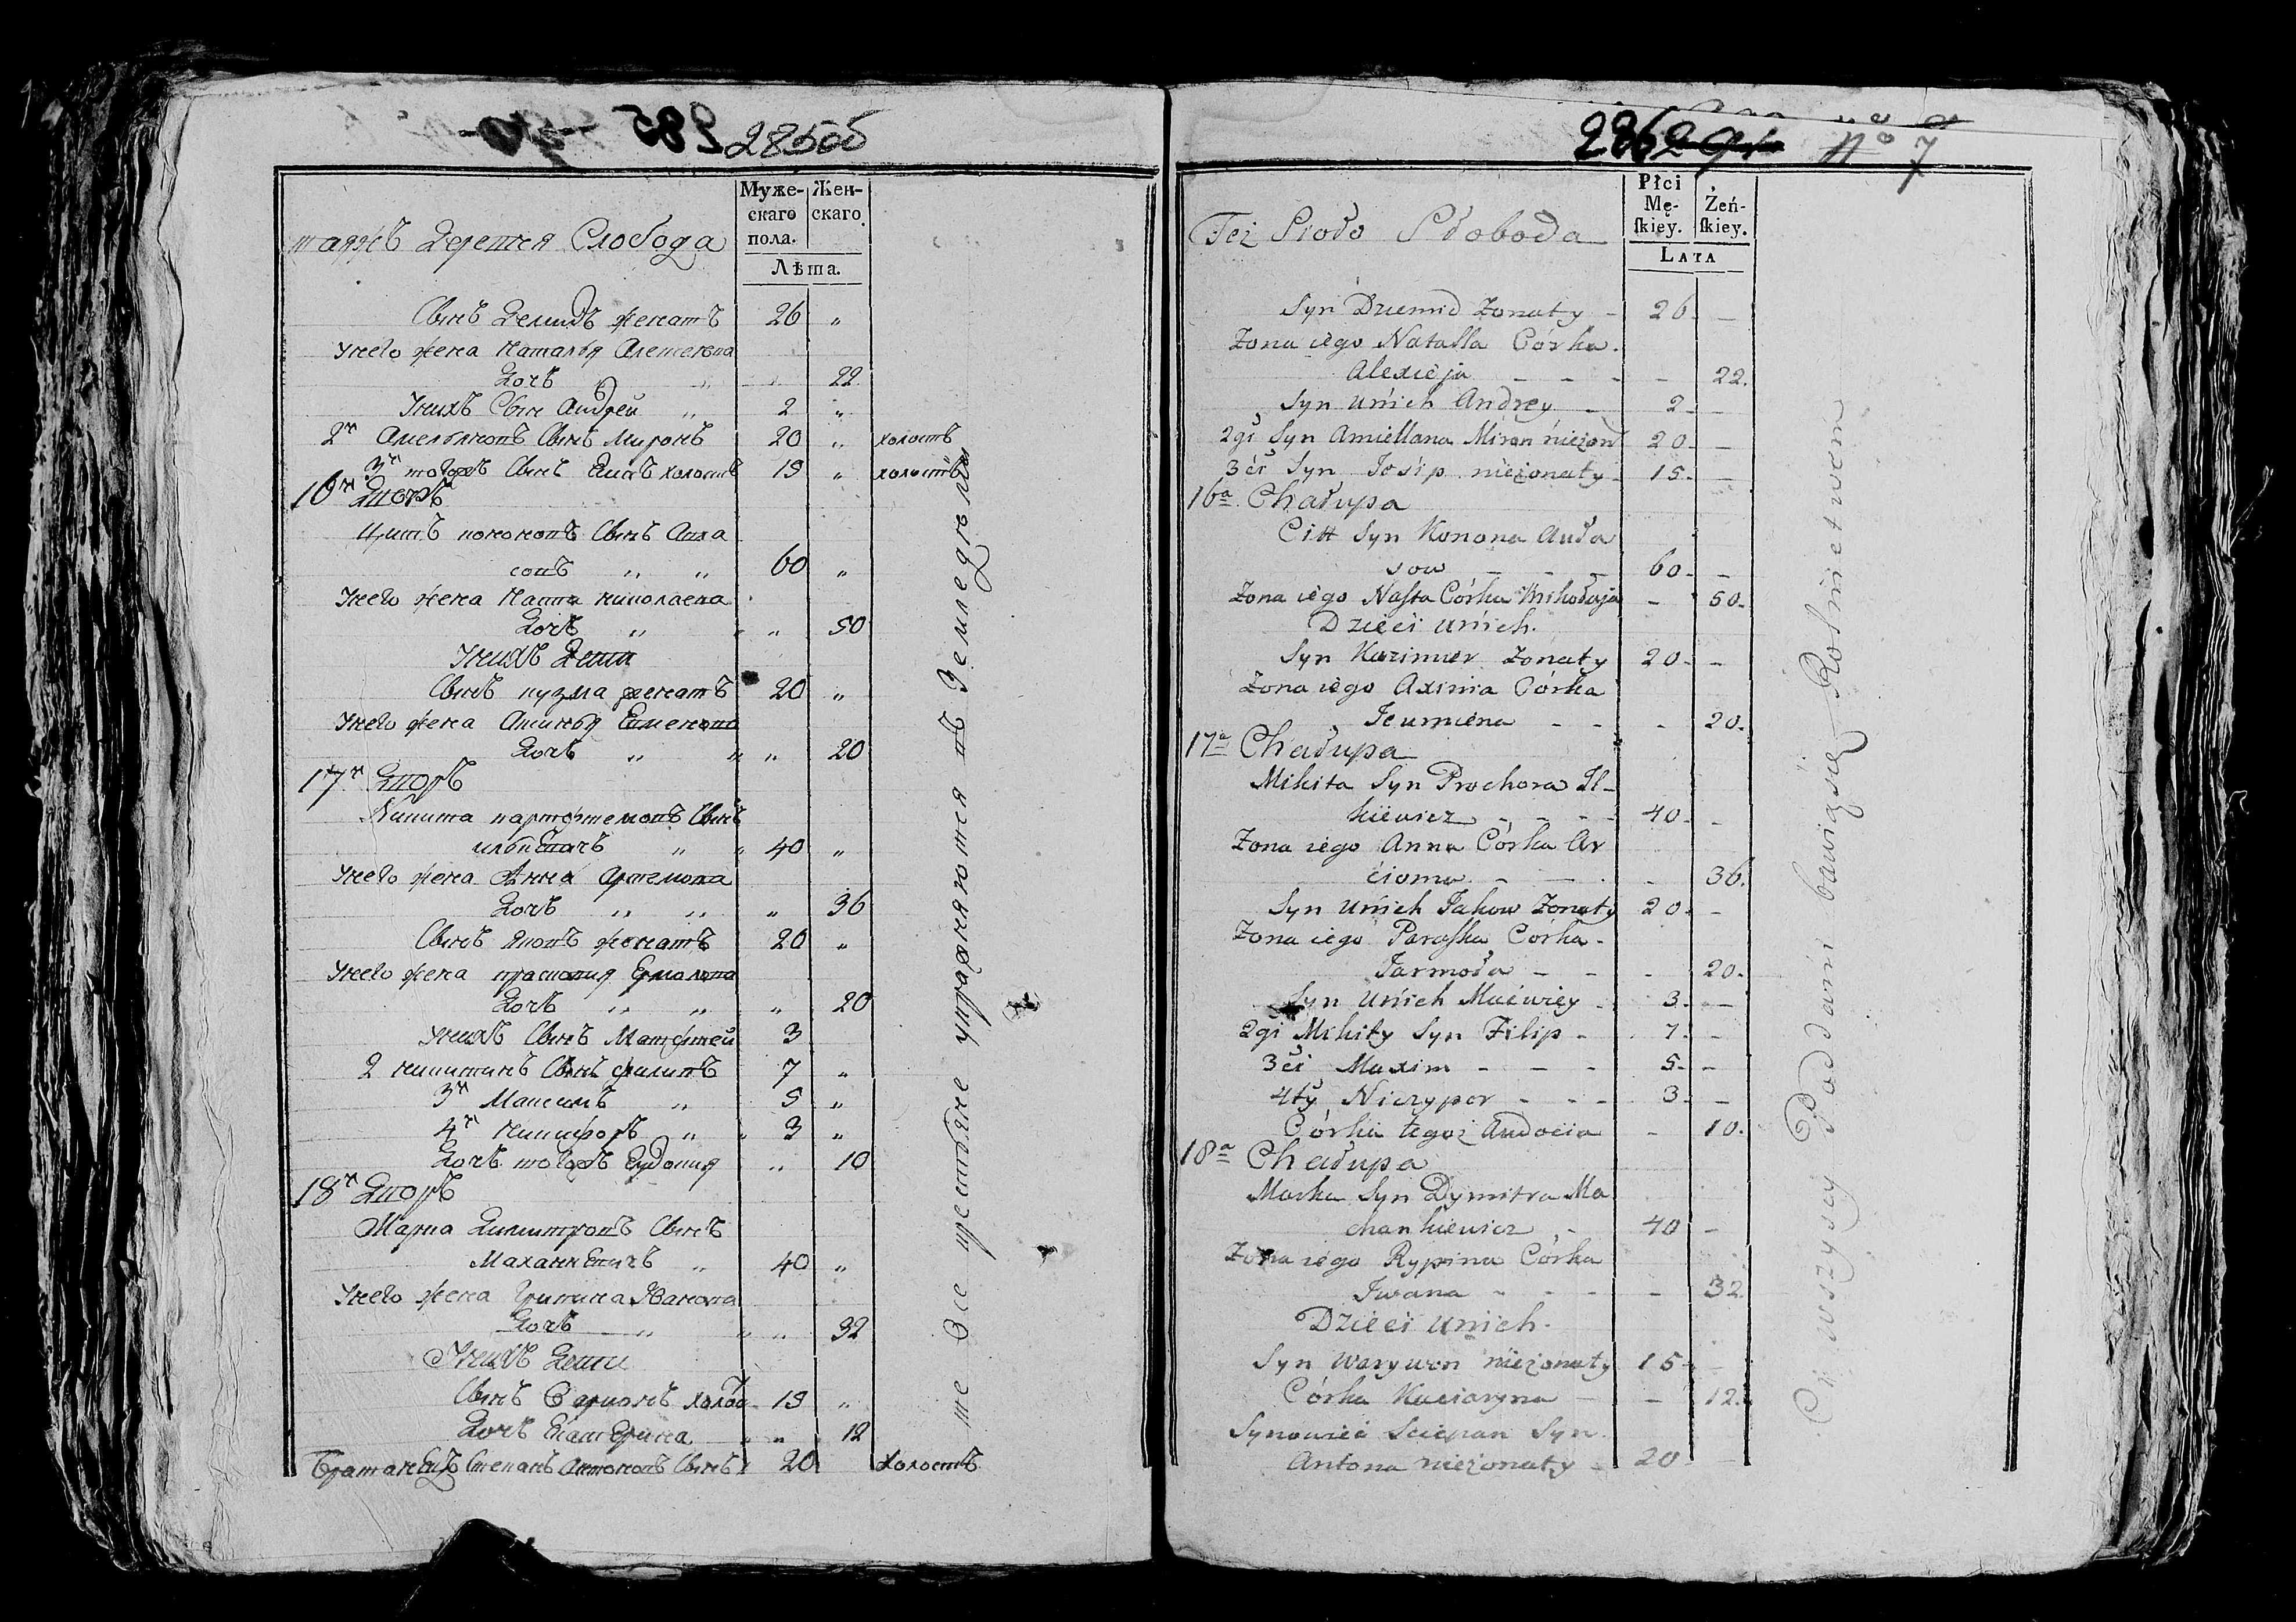 285об
Муже-
скаго
пола.
Жен-
скаго
Лѣта.
таяжъ деревня Слобода
Сынъ Демидъ женатъ 26 „
Унего жена Наталья Алексеева
Дочь „ „ 22
Унихъ Сын Андрей „ 2 „
2й Амельяновъ Сынъ Миронъ 20 „ холостъ
3й тогожъ Сынъ холостъ 15 „ холостъ
16й Дворъ
Цитъ кононовъ Сынъ Авла
совъ „ „ 60 „
Унего жена Наста николаева
Дочь „ „ „ 50
Унихъ Дети
Сынъ кузма женатъ 20 „
Унего жена Аксинья
Дочь „ „ „ 20
17й Дворъ
Никита Сынъ
илькевичъ „ „ 40 „
Унего жена Анна Артемова
Дочь „ „ „ 36
Сынъ яковъ женатъ 20 „
Унего жена прасковия Ермолова
Дочь „ „ „ 20
Унихъ Сынъ Матфей 3
2 никитинъ Сынъ филипъ 7 „
3й Максимъ „ 5 „
4й Никифоръ „ „ 3 „
Дочь тогожъ Евдокия „ 10
18й Дворъ
Марка Димитровъ Сынъ
Маханкевичъ „ 40 „
Унего жена Грипина Иванова
Дочь „ „ „ 32
Унихъ Дети
Сынъ Варивонъ холос 15 „
Дочь Екатерина „ „ 12
Братанецъ Степанъ Антоновъ Сынъ 20 холостъ
те все крестьяне упражняются въ Земледелии
286
No 7
Płci
Mę-
ſkiey.
Żeń-
ſkiey.
LATA
Też Sioło Słoboda
Syn Dziemid Żonaty - 26 - -
Żona iego Natalla Córka
Alexieja - - - - 22.
Syn Unich Andrey - 2 - -
2gi Syn Amiellana Miron nieżon 20 - -
3ci Syn Josip nieżonaty 15 - -
16a Chałupa
Citt Syn Konona Auła
sow - - - 60 - -
Żona iego Nasta Córka Mikołaja - 50 -
Dzieci unich.
Syn Kuzimier Żonaty 20 - -
Żona iego Axinia Córka
Jeumiena - - - 20.
17a Chałupa
Mikita Syn Prochora Il-
kiewicz - - - 40 - -
Żona iego Anna Córka Ar
ciomu - - - 36.
Syn Unich Jakow Żonaty 20 - -
Żona iego Paraska Córka -
Jarmoła - - - 20 -
Syn Unich Maćwiey - 3 - -
2gi Mikity Syn Filip - 7 - -
3ci Maxim - - - 5 - -
4ty Niczypor - - - 3 - -
Córka tegoż Audocia - 10.
18a Chałupa
Marka Syn Dymitra Ma
chankiewicz - 40 -
Żona iego Rypina Córka
Iwana - - - - 32
Dzieci unich.
Syn Warywon nieżonaty 15 - -
Córka Kaciaryna - - 12.
Synowiec Sciepan Syn
Antona nieżonaty - 20 -
Ci wszyscy Poddani bawią się Rolnictwem